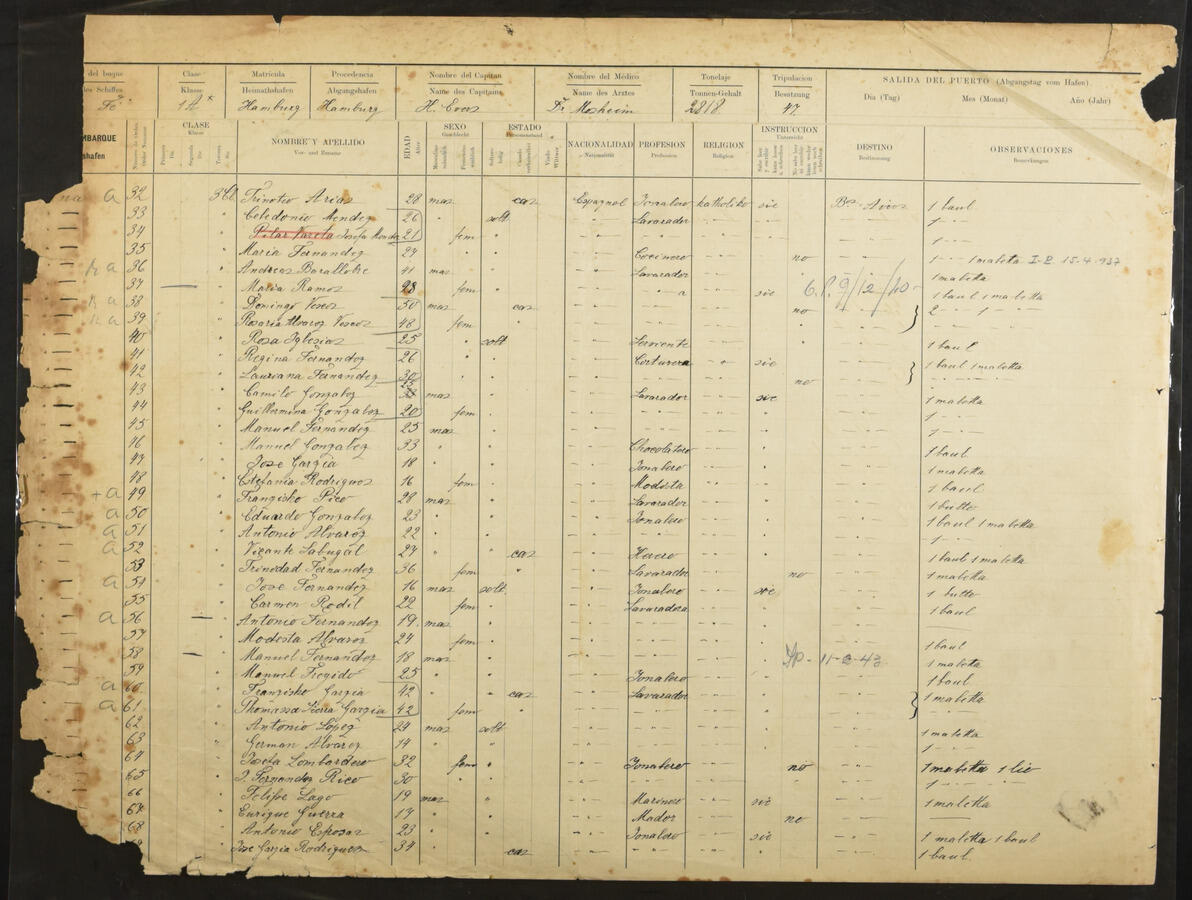 del buque Clase Matrícula Procedencia Nombre del Capitan Nombre del Médico Tonelaje Tripulacion SALIDA DEL PUERTO (Abgangstag vom Hafen)
des Schiffes Klasse Heimathshafen Abgangshafen Name des Capitans Name des Arztes Tonnen-Gehalt Besatzung Dia (Tag) Mes (Monat) Año (Jahr)
Hamburg Hamburg H. Evers Dr. Mosheim 2818. 47.
MBARQUE CLASE NOMBRE Y APELLIDO EDAD SEXO ESTADO NACIONALIDAD PROFESION RELIGION INSTRUCCION DESTINO OBSERVACIONES
shafen Klasse Vor- und Zuname Alter Geschlecht Personenstand Nationalität Profession Religion Unterricht Bestimmung Bemerkungen
a 32 3Cl Timoteo Arias 28 mas cas Espagnol Jonalero katholiko sie Bos Aires 1 baul
33 Celedonio Mendez 26 " solt. Lavarador 1
34 Pilar Vareta Josefa Menda 21 fem 1
35 Maria Fernandez 24 Cocinero no 1 1 maleta I-P 15-4-937
a 36 Andreas Barallobre 41 mas Lavarador 1 maletta
37 Maria Ramos 28 fem sie C.P. 9/12/40 1 baul 1 maletta
a 38 Domingo 50 mas cas no 2 1
a 39 Rosaria Alvarez 48 fem
40 Rosa Iglesias 25 solt Serviente 1 baul
41 Regina Fernandez 26 Costurera sie 1 baul 1 maletta
42 Lauriana Fernandez 30 no
43 Camilo Gonzalez mas Lavarador sie 1 maletta
44 Guillermina Gonzalez 20 fem 1
45 Manuel Fernandez 25 mas 1
46 Manuel Gonzalez 33 Chocolatero 1 baul
47 Jose Garzia 18 Jonalero 1 maletta
48 Estefania Rodriguez 16 fem Modista 1 baul
+ a 49 Franzisko Pico 28 mas Lavarador 1 bulto
a 50 Eduardo Gonzalez 23 Jonalero 1 baul 1 maletta
a 51 Antonio Alvarez 22 1
a 52 Vizente Sabugal 27 cas 1 baul 1 maletta
53 Trinedad Fernandez 36 fem Lavarador no 1 maletta
a 54 Jose Fernandez 16 mas solt. Jonalero sie 1 bulto
55 Carmen Rodil 22 fem Lavaradora 1 baul
a 56 Antonio Fernandez 19. mas
57 Modesta Alvarez 24 fem 1 baul
58 Manuel Fernandez 18 mas 11-2-43 1 maletta
59 Manuel Fregido 25 Jonalero 1 baul
a 60 Franzisko Garzia 42 cas Lavarador 1 maletta
a 61 Thomassa Sierra Garzia 42 fem
62 Antonio Lopez 24 mas solt 1 maletta
63 German Alvarez 14 1
64 Josefa Lombardero 32 fem Jonalero no 1 maletta 1 lio
65 J. Fernandez Rico 30
66 Felipe Lago 19 mas Marinero sie 1 maletta
67 Enrique Guerra 17 Mador no
68 Antonio Esposas 23 Jonalero sie 1 maletta 1 baul
Jose Garzia Rodriguez 34 cas 1 baul.